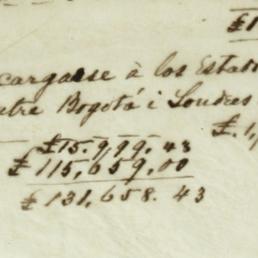 £1
cargarse à los Estad
ntre Bogotá i Londres
£.1,
£15.999.43
£115,659,00
£131,658.43